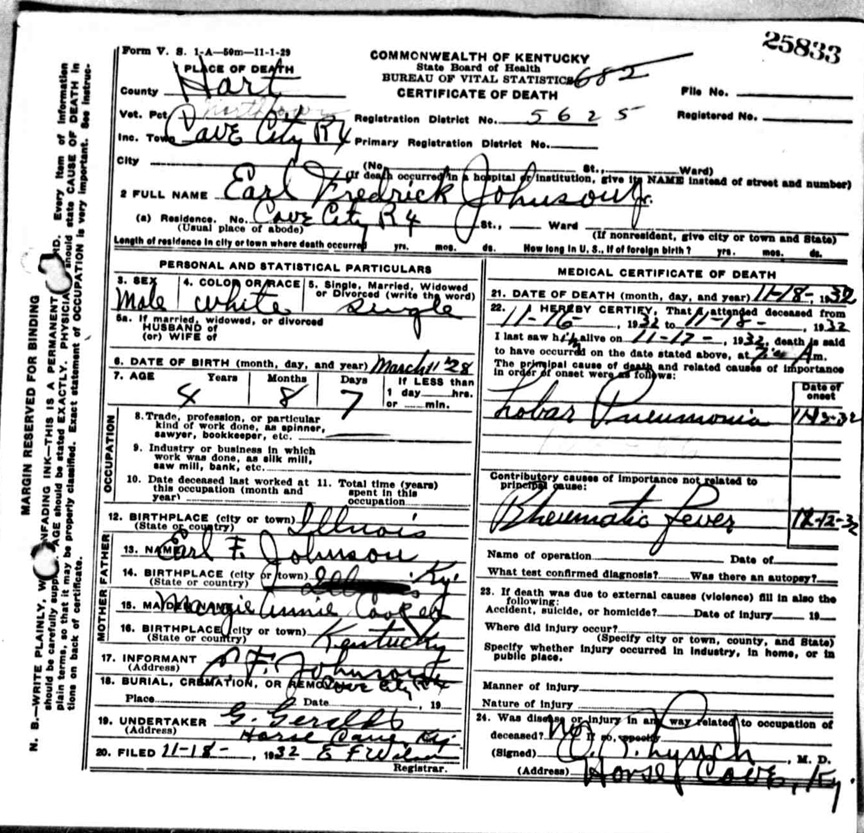 25833
Form V. S. 1-A—50m—11-1-29
COMMONWEALTH OF KENTUCKY
State Board of Health
BUREAU OF VITAL STATISTICS 682
CERTIFICATE OF DEATH
PLACE OF DEATH
County Hart
File No.
Vot. Pct.
Registration District No. 5625
Registered No.
Inc. Town Cave City R4 Primary Registration District No.
City (No. St., Ward)
(If death occurred in a hospital or institution, give its NAME instead of street and number)
2 FULL NAME Earl Fredrick Johnson Jr.
(a) Residence. No. Cave City R4 St., Ward
(Usual place of abode) (If nonresident, give city or town and State)
Length of residence in city or town where death occurred yrs. mos. ds. How long in U. S., if of foreign birth? yrs. mos. ds.
PERSONAL AND STATISTICAL PARTICULARS
3. SEX 4. COLOR OR RACE 5. Single, Married, Widowed
or Divorced (write the word)
Male white single
5a. If married, widowed, or divorced
HUSBAND of
(or) WIFE of
6. DATE OF BIRTH (month, day, and year) March 11 '28
7. AGE Years Months Days If LESS than
1 day hrs.
or min.
4 8 7
OCCUPATION
8. Trade, profession, or particular
kind of work done, as spinner,
sawyer, bookkeeper, etc.
9. Industry or business in which
work was done, as silk mill,
saw mill, bank, etc.
10. Date deceased last worked at 11. Total time (years)
this occupation (month and spent in this
year) occupation
12. BIRTHPLACE (city or town) Illinois
(State or country)
FATHER
13. NAME Earl F. Johnson
14. BIRTHPLACE (city or town) Ky.
(State or country)
MOTHER
15. MAIDEN Margie Annie
16. BIRTHPLACE (city or town) Kentucky
(State or country)
17. INFORMANT E F. Johnson
(Address) Cave City, R4
18. BURIAL, CREMATION, OR REMOVAL
Place Date , 19
19. UNDERTAKER G. Geralds
(Address) Horse Cave Ky.
20. FILED 11-18- , 1932 E F
Registrar.
MEDICAL CERTIFICATE OF DEATH
21. DATE OF DEATH (month, day, and year) 11-18- 1932
22. I HEREBY CERTIFY, That I attended deceased from
11-16- , 1932 to 11-18- , 1932
I last saw him alive on 11-17- , 1932, death is said
to have occurred on the date stated above, at m.
The principal cause of death and related causes of importance
in order of onset were as follows:
Date of
onset
Lobar Pneumonia
Contributory causes of importance not related to
principal cause:
Rheumatic fever
Name of operation Date of
What test confirmed diagnosis? Was there an autopsy?
23. If death was due to external causes (violence) fill in also the
following:
Accident, suicide, or homicide? Date of injury 19
Where did injury occur?
(Specify city or town, county, and State)
Specify whether injury occurred in industry, in home, or in
public place.
Manner of injury
Nature of injury
24. Was disease or injury in any way related to occupation of
deceased? No If so, specify
(Signed) Lynch , M. D.
(Address) Horse Cave, Ky.
MARGIN RESERVED FOR BINDING
N. B.—WRITE PLAINLY, UNFADING INK—THIS IS A PERMANENT Every item of information
should be carefully AGE should be stated EXACTLY. PHYSICIANS should state CAUSE OF DEATH in
plain terms, so that it may be properly classified. Exact statement of OCCUPATION is very important. See instruc-
tions on back of certificate.